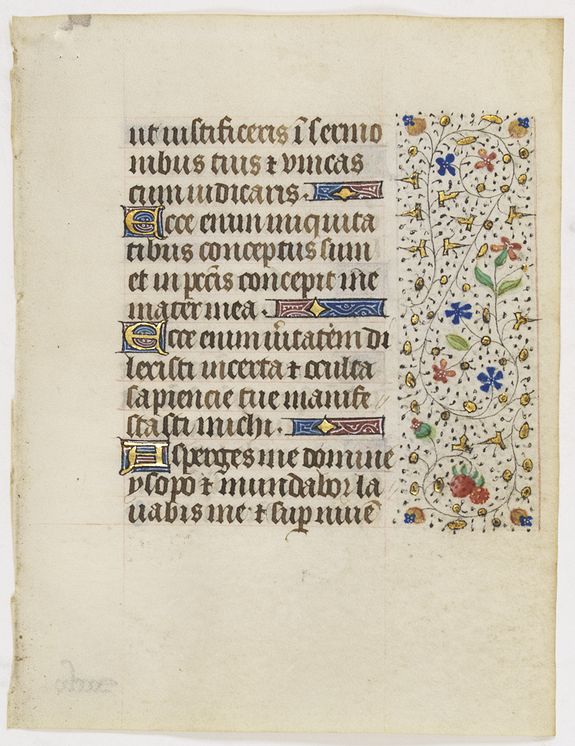 ut iustificeris ī sermo
nibus tuis ⁊ vincas
cum iudicaris.
Ecce enim iniquita
tibus conceptus sum
et in pccīs concepit me
mater mea.
Ecce enim uītatem di
lexisti incerta ⁊ occulta
sapiencie tue manife
stasti michi.
Asperges me domine
ysopo ⁊ mundabor la
uabis me ⁊ sup niuē